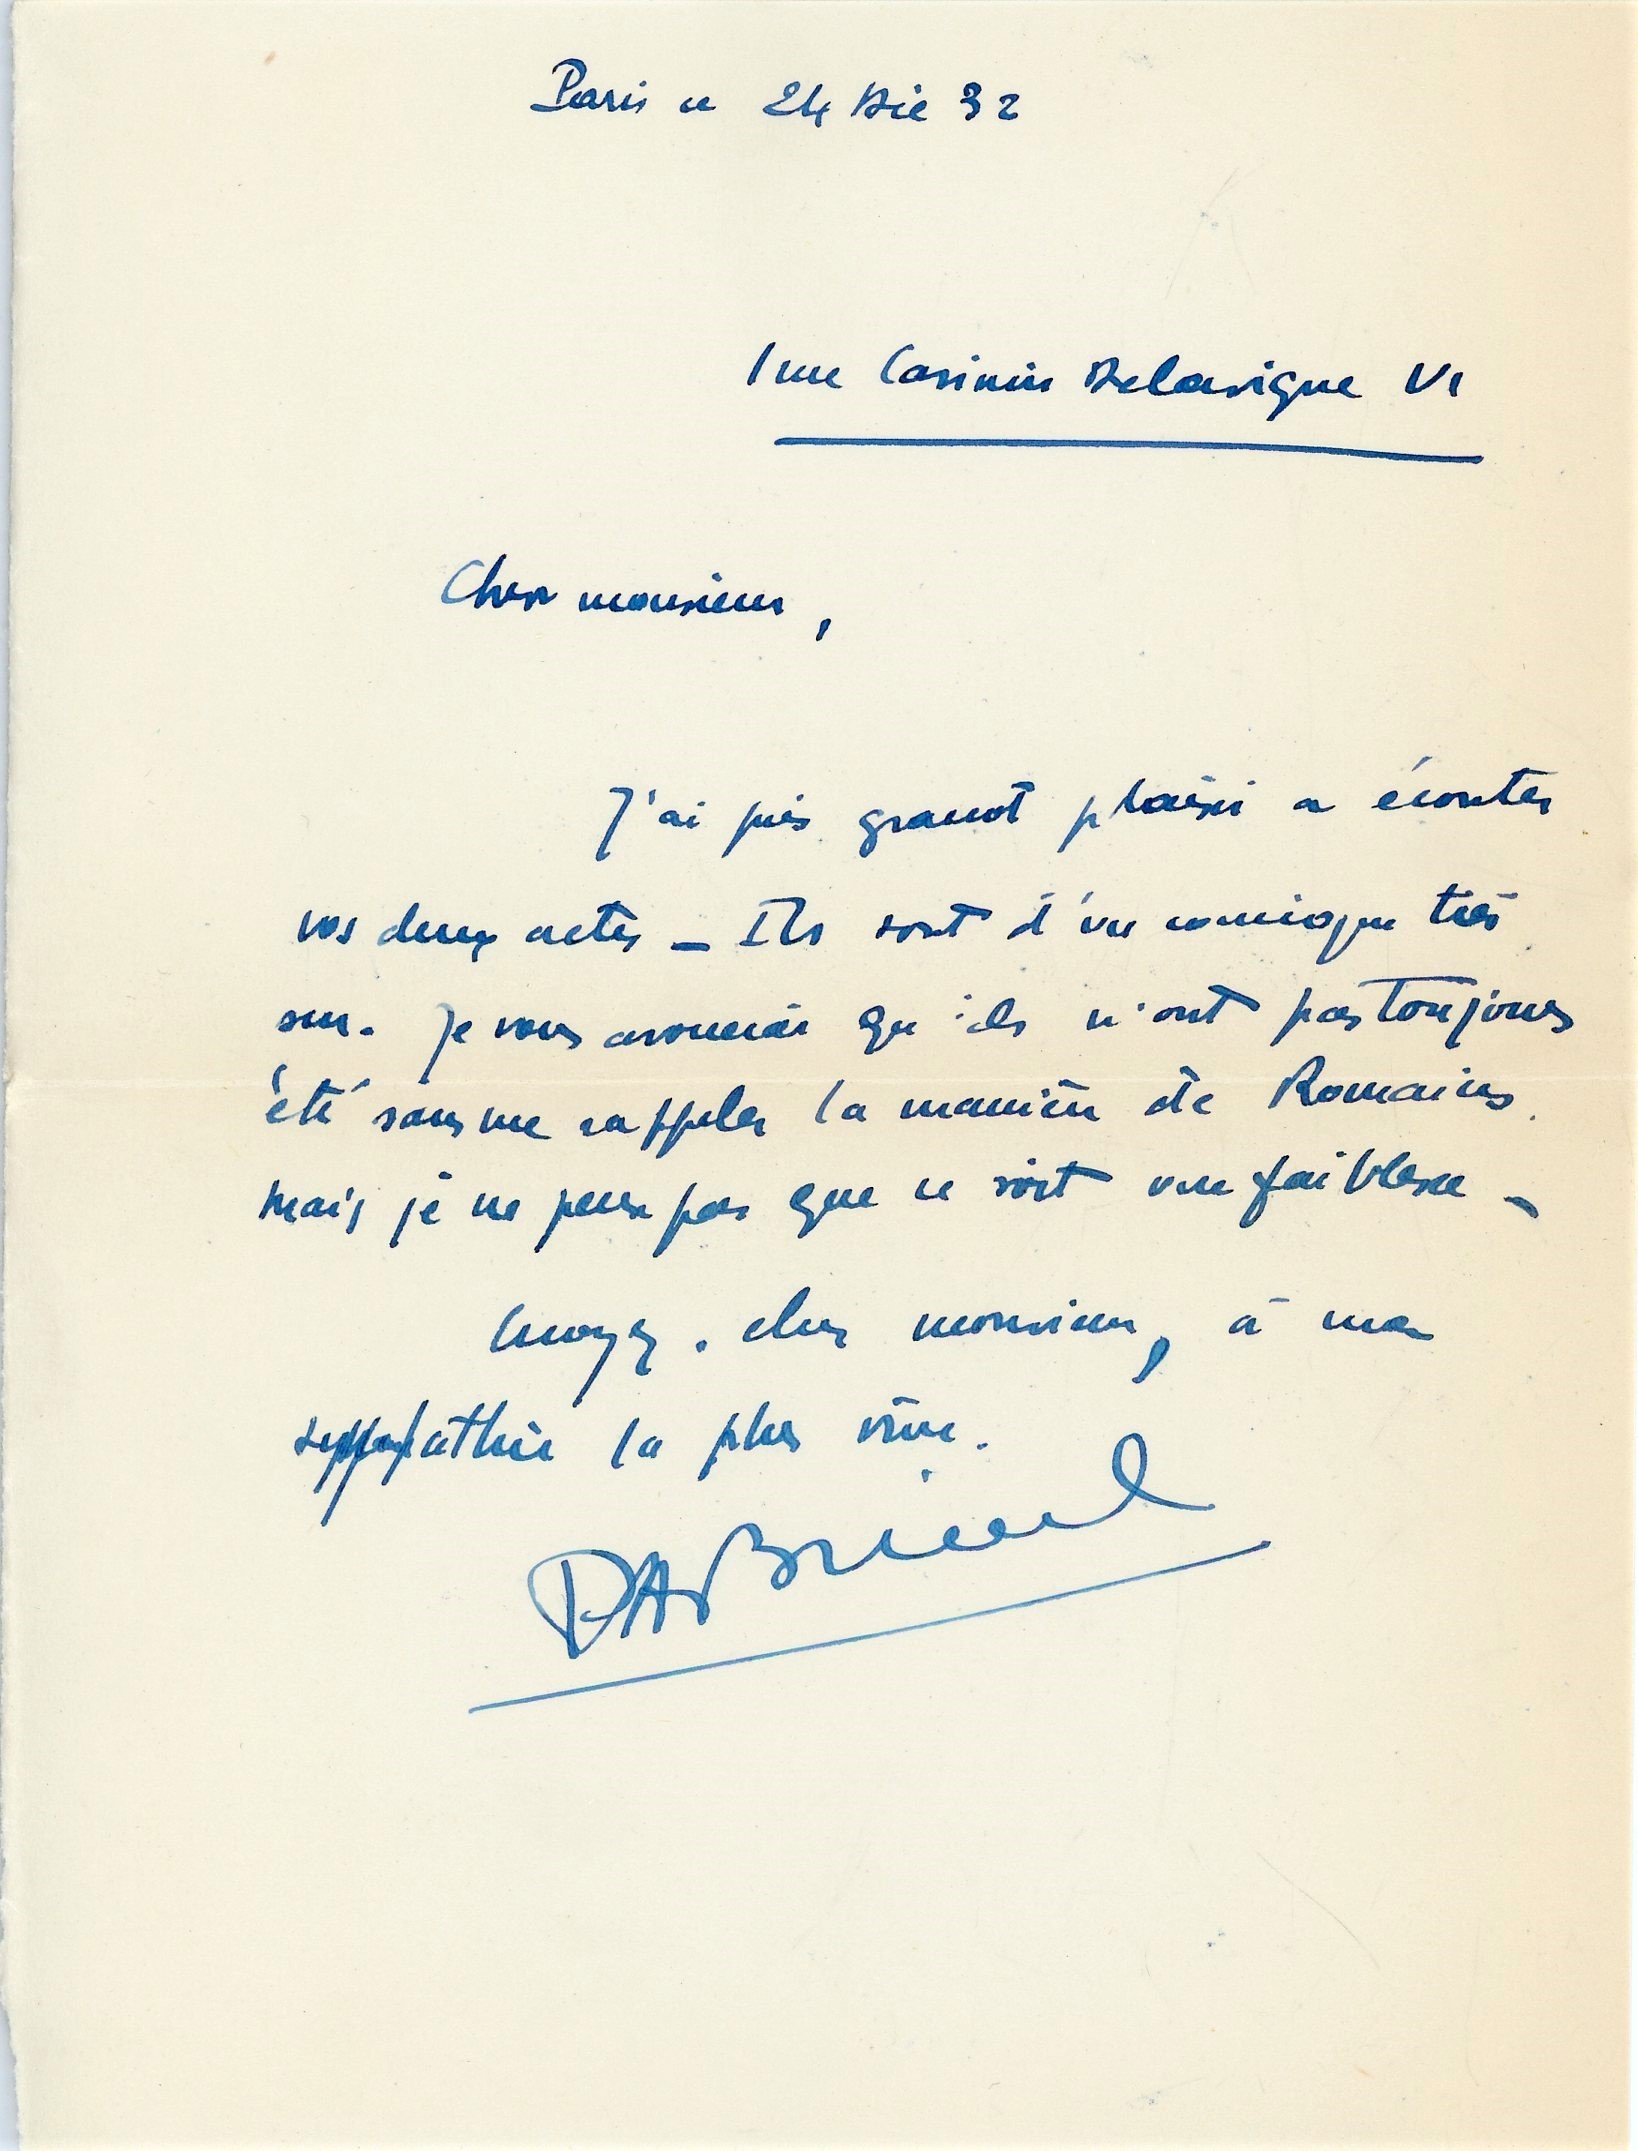 Paris ce 24 Déc 32
1 rue Casimir Delavigne VI
Cher monsieur,
J'ai pris grand plaisir a écouter
vos deux actes _ Ils sont d'un comique très
sur. Je vous avouerai qu'ils n'ont pas toujours
été sans me rappeler la manière de Romains.
Mais je ne pense pas que ce soit une faiblesse _
Croyez, cher monsieur, à ma
sympathie la plus vive.